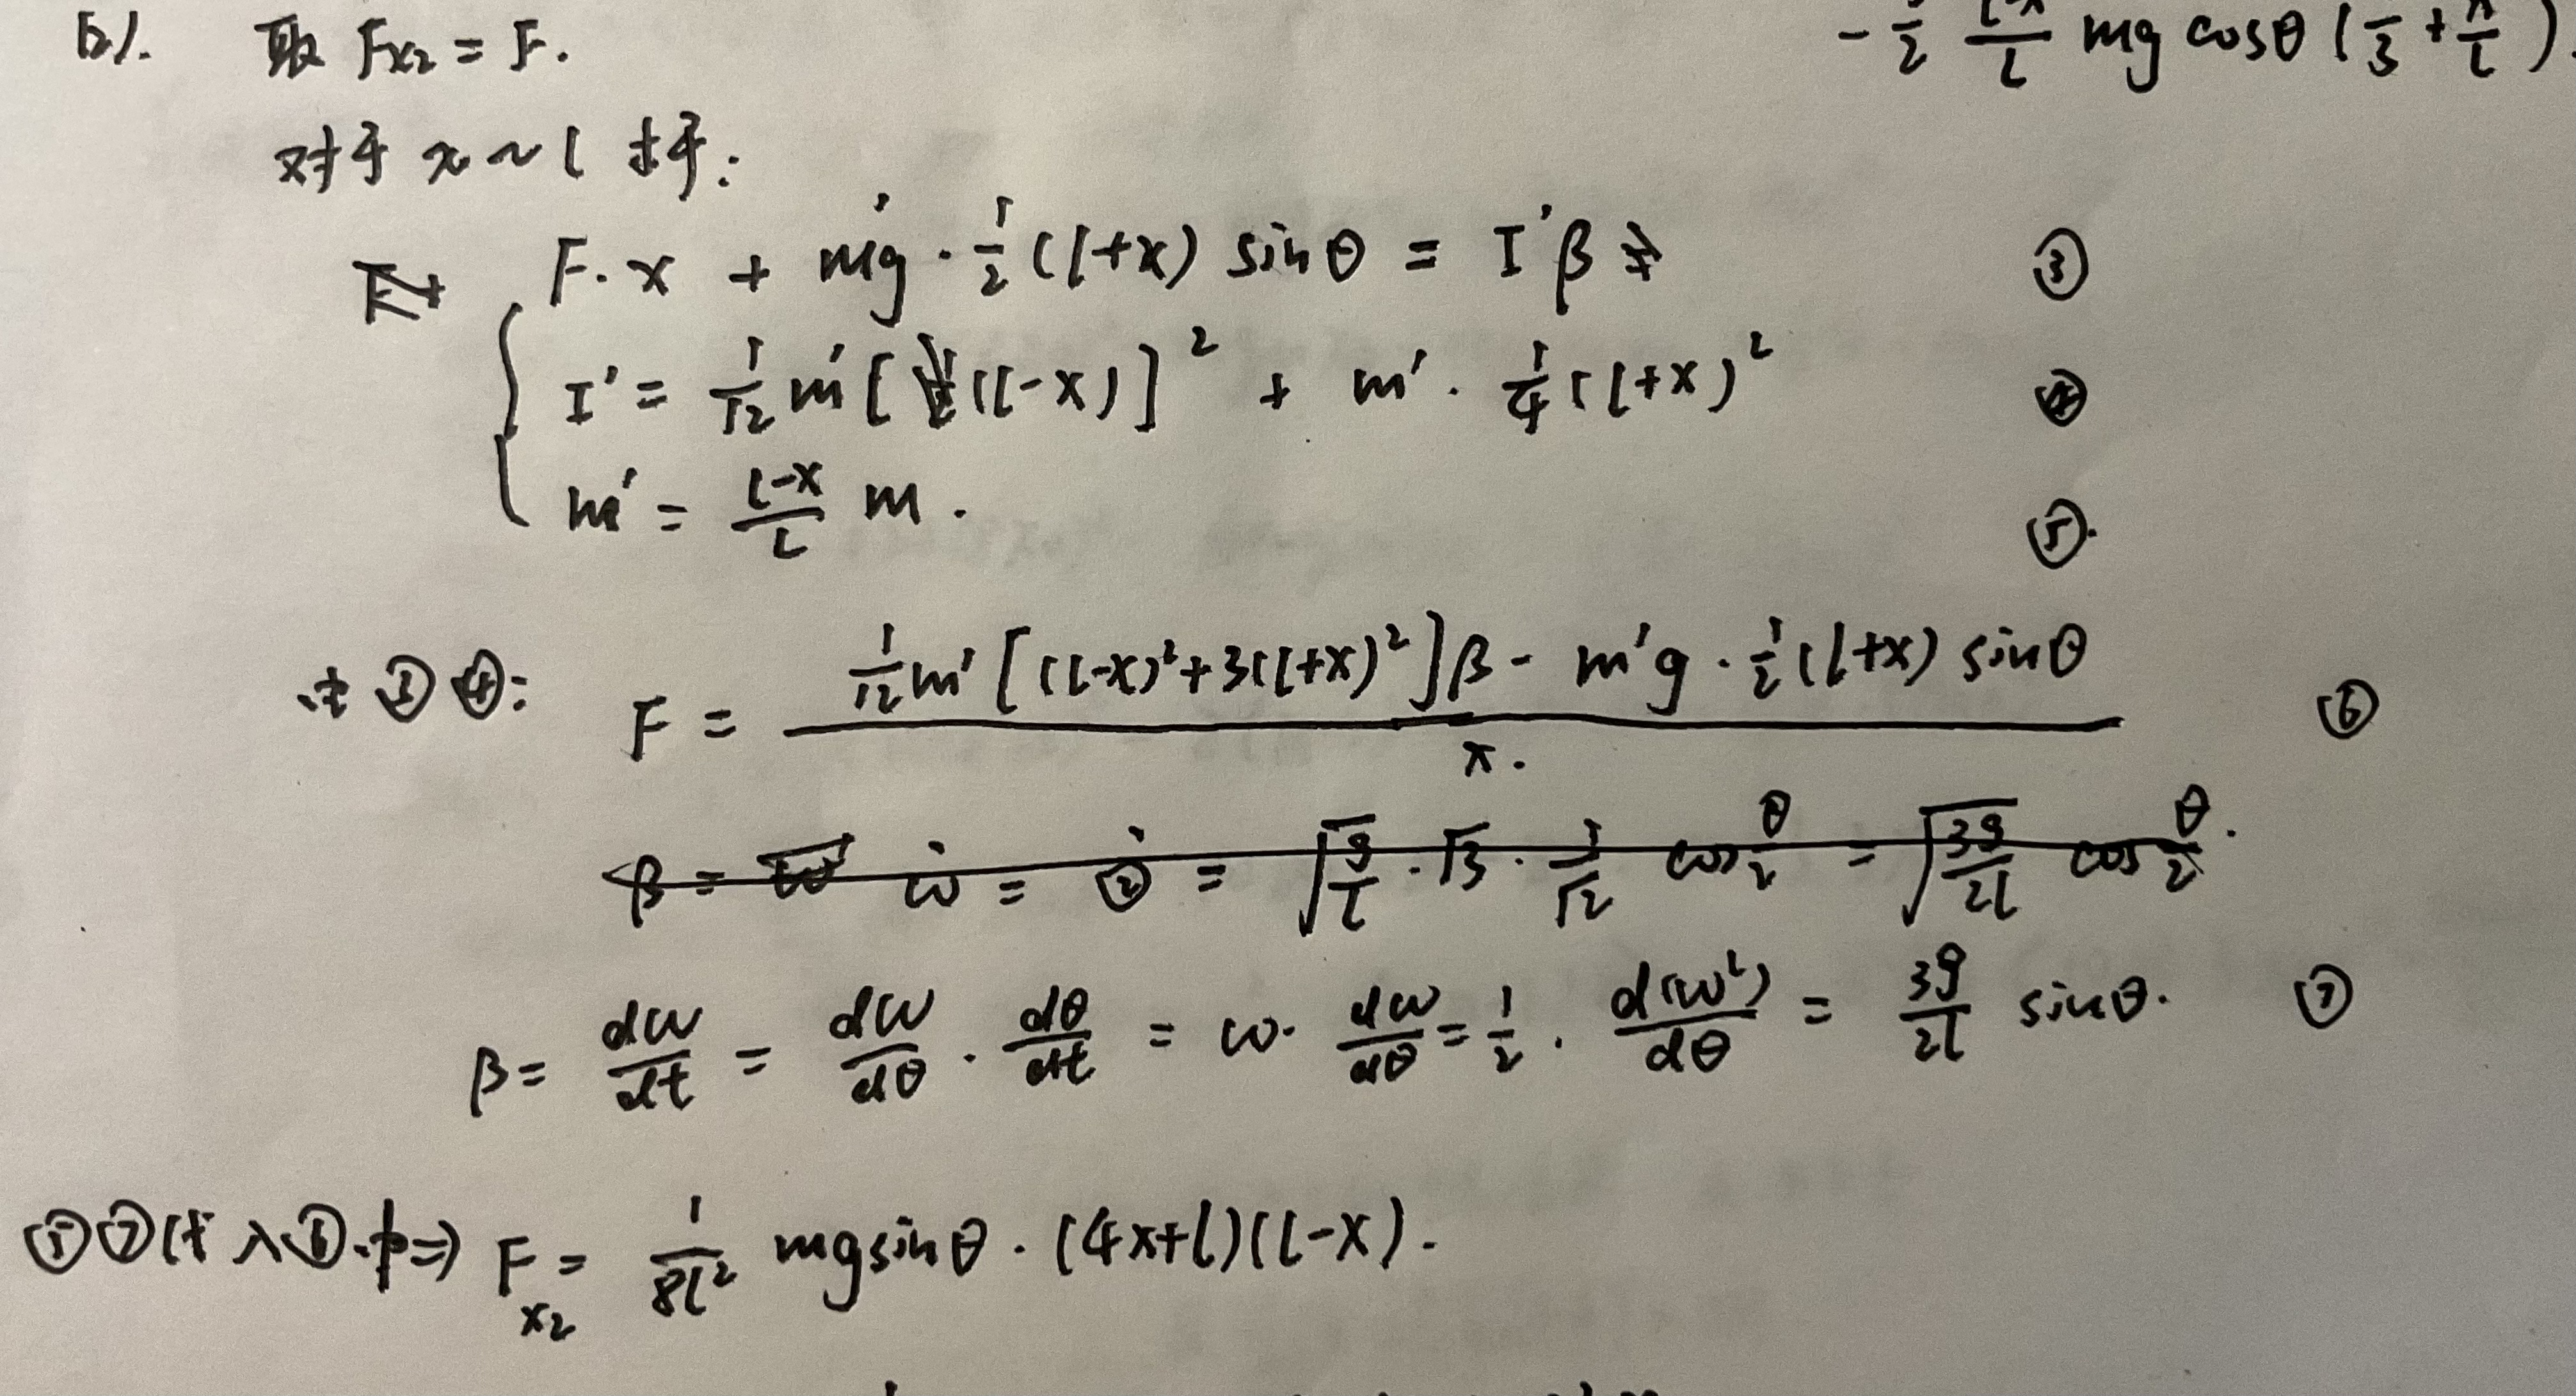 (2). 取 Fx₂ = F.
- 1/2 (l-x)/l mg cosθ (1/3 + x/l).
对于 x ~ l 杆:
F·x + m'g · 1/2 (l+x) sinθ = I'β ③
I' = 1/12 m' [(l-x)]² + m' · 1/4 (l+x)² ④
m' = (l-x)/l m. ⑤
由③④: F = (1/12 m' [(l-x)² + 3(l+x)²]β - m'g · 1/2 (l+x) sinθ) / x. ⑥
β = ω̇ = ②̇ = √(g/l) · √3 · 1/√2 cos θ/2 = √(3g/2l) cos θ/2.
β = dω/dt = dω/dθ · dθ/dt = ω · dω/dθ = 1/2 · d(ω²)/dθ = 3g/2l sinθ. ⑦
⑤⑦代入⑥中⇒ Fx₂ = 1/8l² mg sinθ · (4x+l)(l-x).